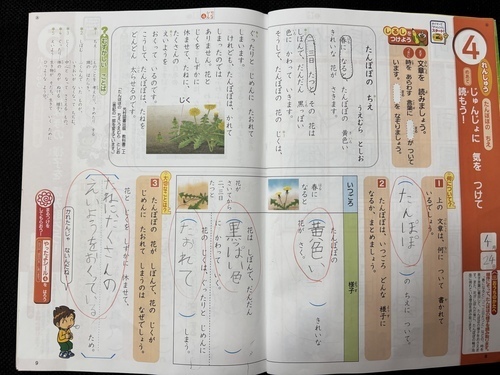 4
れんしゅう
たんぽぽの ちえ
じゅんじょに 気を つけて
読もう!
4
24
しるしを
つけよう
文章を 読みましょう。
時を あらわす 言葉に
が ついて
います。
を なぞりましょう。
たんぽぽの ちえ
うえむら としお
春に なると、たんぽぽの 黄色い
きれいな 花が さきます。
二、三日 たつと、その 花は
しぼんで、だんだん 黒っぽい
色に かわって いきます。
そうして、たんぽぽの 花の じくは、
ぐったりと じめんに たおれて
しまいます。
けれども、たんぽぽは、かれて
しまったのでは
ありません。花と
じくを しずかに
休ませて、たねに、
たくさんの
えいようを
おくって いるのです。
こうして、たんぽぽは、たねを
どんどん 太らせるのです。
じく
?
むずかしい ことば
1
上の 文章は、何に ついて 書かれて
いるでしょう。
たんぽぽ
の ちえに ついて。
2
たんぽぽは、いつごろ どんな 様子に
なるか、まとめましょう。
いつごろ
様子
春に
なると
たんぽぽの
黄色い
きれいな
花が さく。
花が
さいてから
二、三日
たつと
花は しぼんで、だんだん
黒っぽい色
に かわって いく。
花の じくは、ぐったりと じめんに
たおれて
しまう。
3
たんぽぽの 花が しぼんで、花の じくが
じめんに たおれて しまうのは なぜでしょう。
花と じくを しずかに 休ませて、
たねに、たくさんの
えいようをおくっている
ため。
かれたんじゃ
ないんだね!
8
9